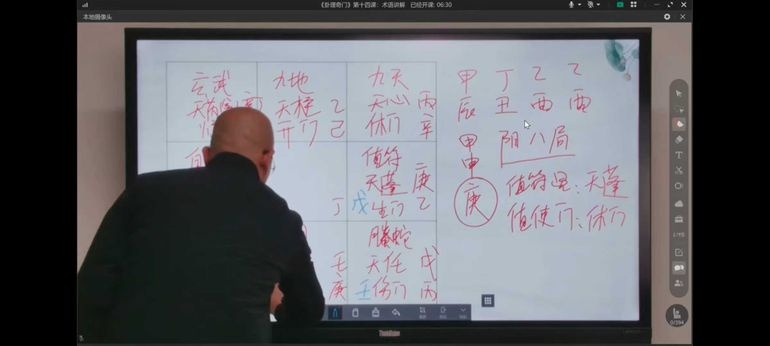 《卦理奇门》第十四课：术语讲解 已经开课：06:30
本地摄像头
玄武 九地 九天
天柱 乙 天心 丙
开门 己 休门 辛
值符
天蓬 庚
丁 戊 生门 乙
螣蛇
壬 天任 戊
庚 壬 伤门 丙
甲 丁 乙 乙
辰 丑 酉 酉
甲申 阴八局
庚 值符星：天蓬
值使门：休门
0/394